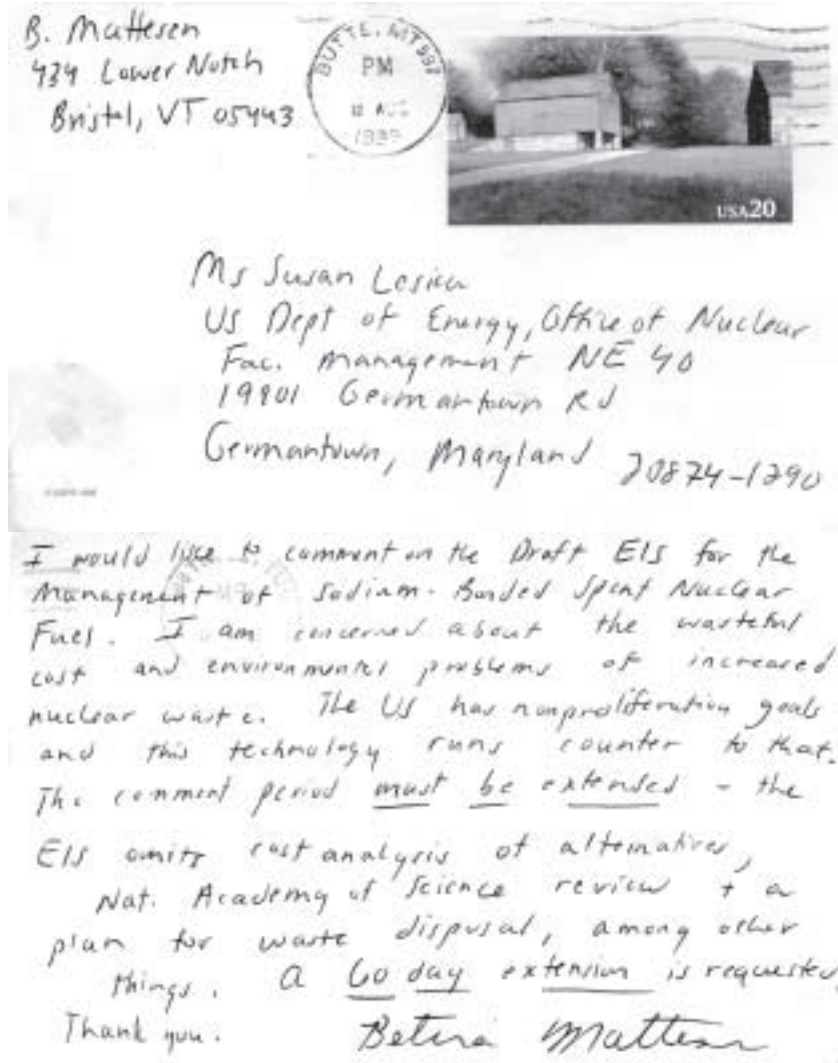 B. Mattesen
434 Lower Notch
Bristol, VT 05443
BUTTE, MT 597
PM
12 AUG
1999
USA20
Ms Susan Lesica
US Dept of Energy, Office of Nuclear
Fac. Management NE 40
19901 Germantown Rd
Germantown, Maryland 20874-1290
I would like to comment on the Draft EIS for the
Management of Sodium-Bonded Spent Nuclear
Fuel. I am concerned about the wasteful
cost and environmental problems of increased
nuclear waste. The US has nonproliferation goals
and this technology runs counter to that.
The comment period must be extended - the
EIS omits cost analysis of alternatives,
Nat. Academy of Science review + a
plan for waste disposal, among other
things. A 60 day extension is requested.
Thank you. Betina Mattesen